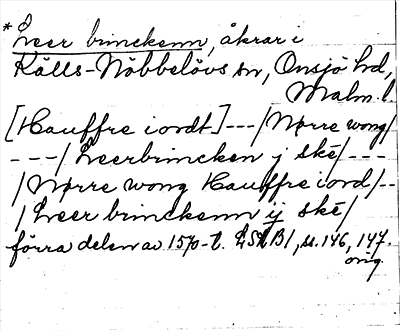 *Leer brinckenn, åkrar i
Källs-Nöbbelövs sn, Onsjö hd,
Malm. l.
[Hauffre iordt]---/Nørre wong/
---/Leerbrincken j ské/---
/Nørre wong Hauffre iord/--
/Leer brinckenn ij ské/
förra delen av 1570-t. LSkB1, s. 146, 147.
orig.